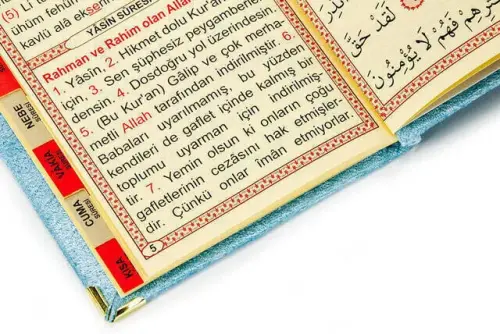 (5) Li
ühüm fehü
kavlü alâ ekse
YÂSİN SÛRESİ
Rahman ve Rahim olan Alla
1. Yâsîn. 2. Hikmet dolu Kur'a
için, 3. Sen şüphesiz peygamberle
densin. 4. Dosdoğru yol üzerindesin.
5. (Bu Kur'an) Gâlip ve çok merha-
metli Allah tarafından indirilmiştir. 6.
Babaları uyarılmamış, bu yüzden
kendileri de gaflet içinde kalmış bir
toplumu uyarman için indirilmiş-
tir. 7. Yemin olsun ki onların çoğu
gafletlerinin cezâsını hak etmişler-
dir. Çünkü onlar îmân etmiyorlar.
5
NEBE
SÛRESİ
VAKIA
CUMA
SÛRESİ
KISA
لَقَدْ حَقَّ
هِمْ فَهُمْ لَا يُؤْمِنُونَ